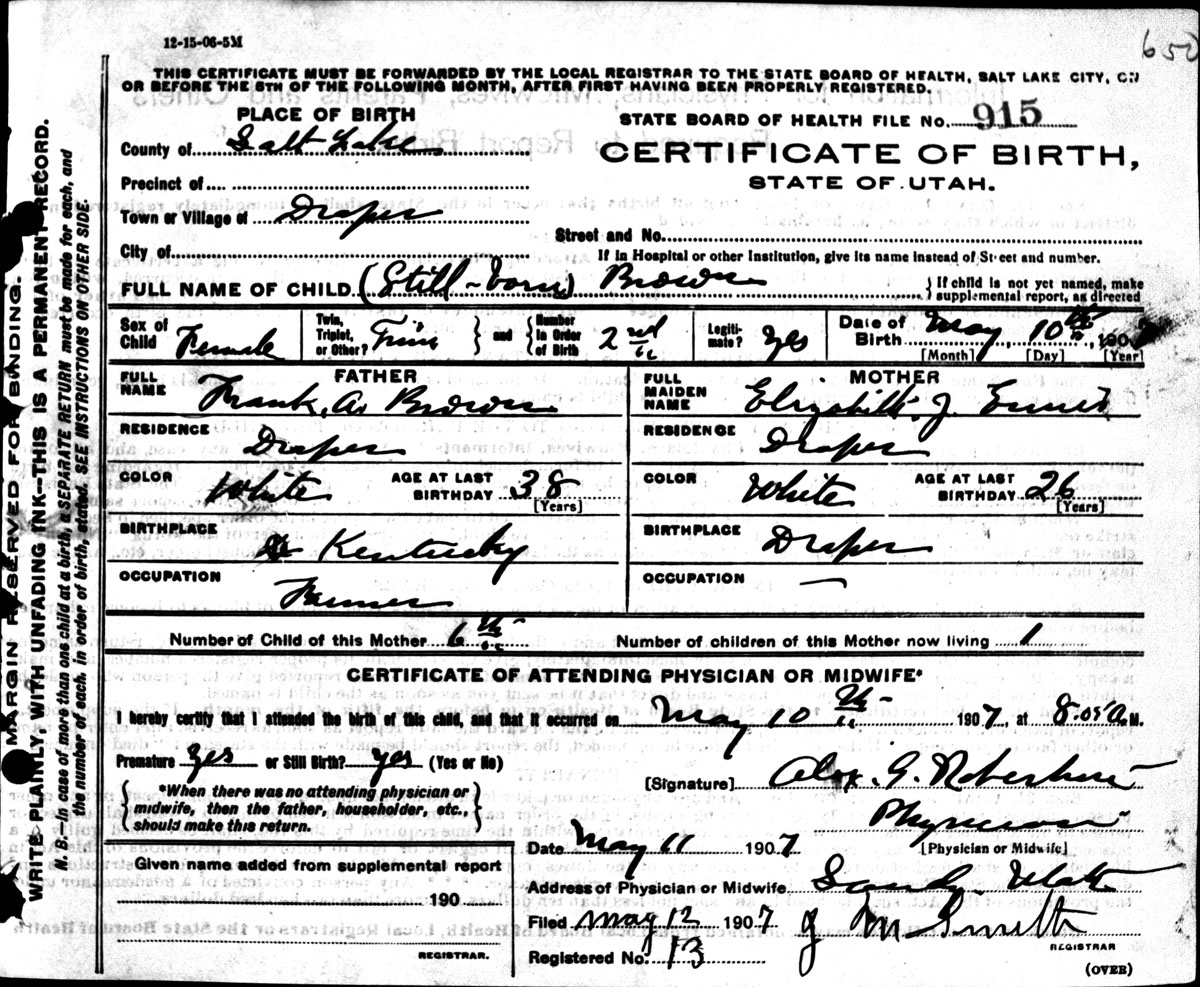 12-15-06-5M
650
THIS CERTIFICATE MUST BE FORWARDED BY THE LOCAL REGISTRAR TO THE STATE BOARD OF HEALTH, SALT LAKE CITY, ON
OR BEFORE THE 5TH OF THE FOLLOWING MONTH, AFTER FIRST HAVING BEEN PROPERLY REGISTERED.
PLACE OF BIRTH
STATE BOARD OF HEALTH FILE No. 915
County of Salt Lake
CERTIFICATE OF BIRTH,
STATE OF UTAH.
Precinct of
Town or Village of Draper
Street and No.
City of
If in Hospital or other Institution, give its name instead of Street and number.
FULL NAME OF CHILD (Still-born) Brown
If child is not yet named, make
supplemental report, as directed
Sex of Child Female
Twin, Triplet, or Other? Twin and Number in Order of Birth 2nd
Legitimate? Yes
Date of Birth May 10th, 190
[Month] [Day] [Year]
FATHER
FULL NAME Frank A. Brown
MOTHER
FULL MAIDEN NAME Elizabeth J.
RESIDENCE Draper
RESIDENCE Draper
COLOR White
AGE AT LAST BIRTHDAY 38
[Years]
COLOR White
AGE AT LAST BIRTHDAY 26
[Years]
BIRTHPLACE Kentucky
BIRTHPLACE Draper
OCCUPATION Farmer
OCCUPATION —
Number of Child of this Mother 6th
Number of children of this Mother now living 1
CERTIFICATE OF ATTENDING PHYSICIAN OR MIDWIFE*
I hereby certify that I attended the birth of this child, and that it occurred on May 10th 1907, at 8.05 A.M.
Premature yes or Still Birth? yes (Yes or No)
*When there was no attending physician or
midwife, then the father, householder, etc.,
should make this return.
[Signature] Alex. G. Robertson
Physician
[Physician or Midwife]
Date May 11 1907
Given name added from supplemental report
190
REGISTRAR.
Address of Physician or Midwife Sandy Utah
Filed May 12 1907
J M Smith
REGISTRAR
Registered No. 13
(OVER)
MARGIN RESERVED FOR BINDING.
WRITE PLAINLY, WITH UNFADING INK—THIS IS A PERMANENT RECORD.
N. B.—In case of more than one child at a birth, a SEPARATE RETURN must be made for each, and
the number of each, in order of birth, stated. SEE INSTRUCTIONS ON OTHER SIDE.